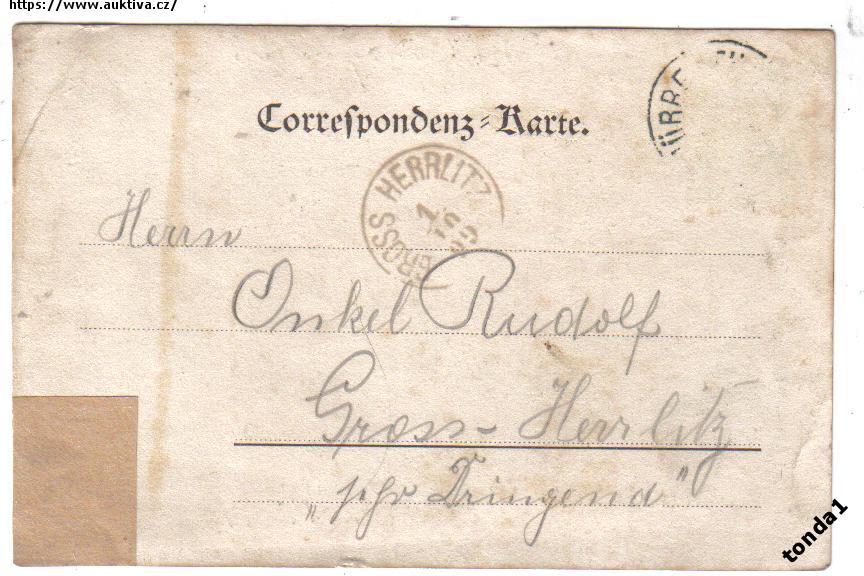 https://www.auktiva.cz/
Correspondenz-Karte.
GROSS HERRLITZ
Herrn
Onkel Rudolf
Gross-Herrlitz
„sehr Dringend"
tonda1